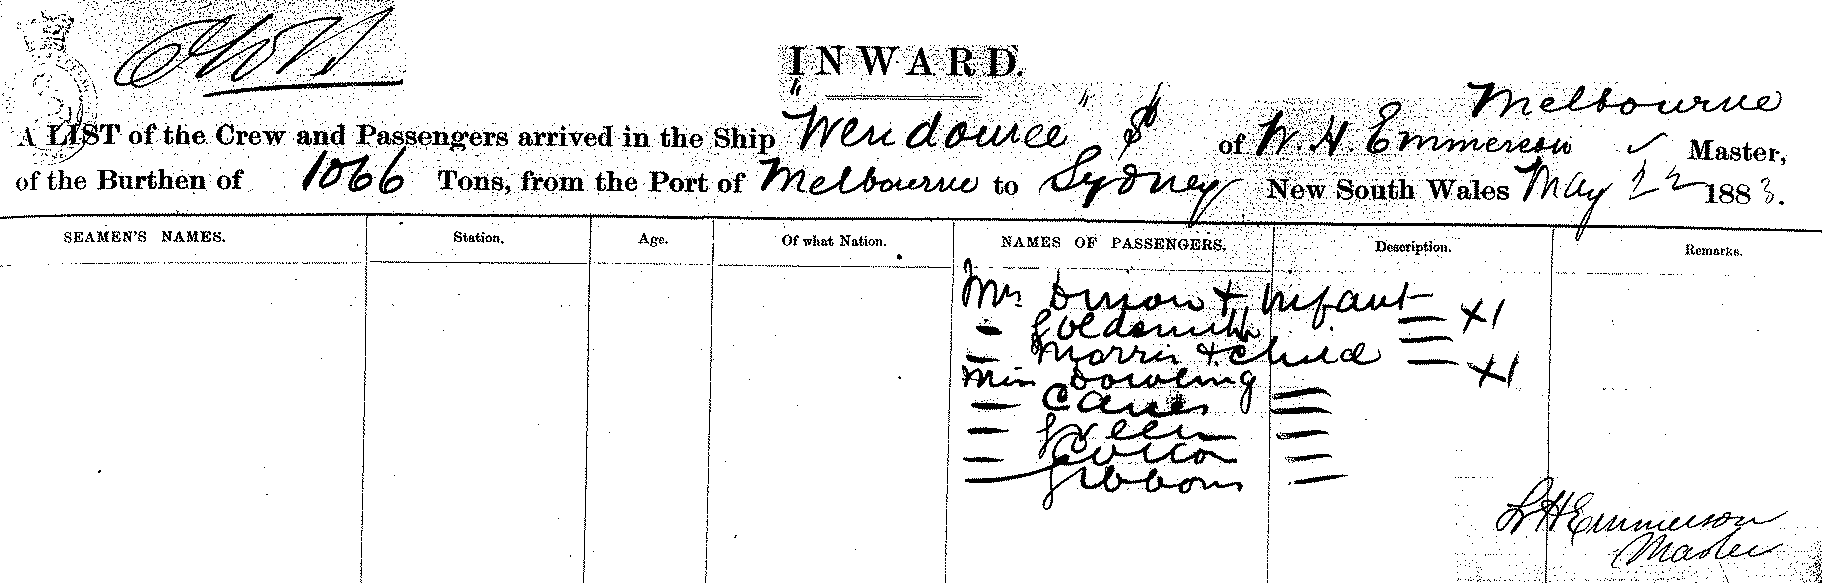 INWARD.
Melbourne
A LIST of the Crew and Passengers arrived in the Ship "Wendouree" of W. H. Emmerson Master,
of the Burthen of 1066 Tons, from the Port of Melbourne to Sydney New South Wales May 22 1883.
SEAMEN'S NAMES. Station. Age. Of what Nation. NAMES OF PASSENGERS. Description. Remarks.
Mrs + Infant — X1
— Goldsmith —
— Morris + child — X1
Miss Dowling —
— —
— Green —
— Cotton —
— Gibbons —
WHEmmerson
Master